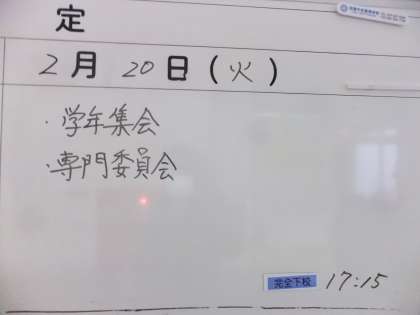 定
2月20日(火)
・学年集会
・専門委員会
完全下校 17:15